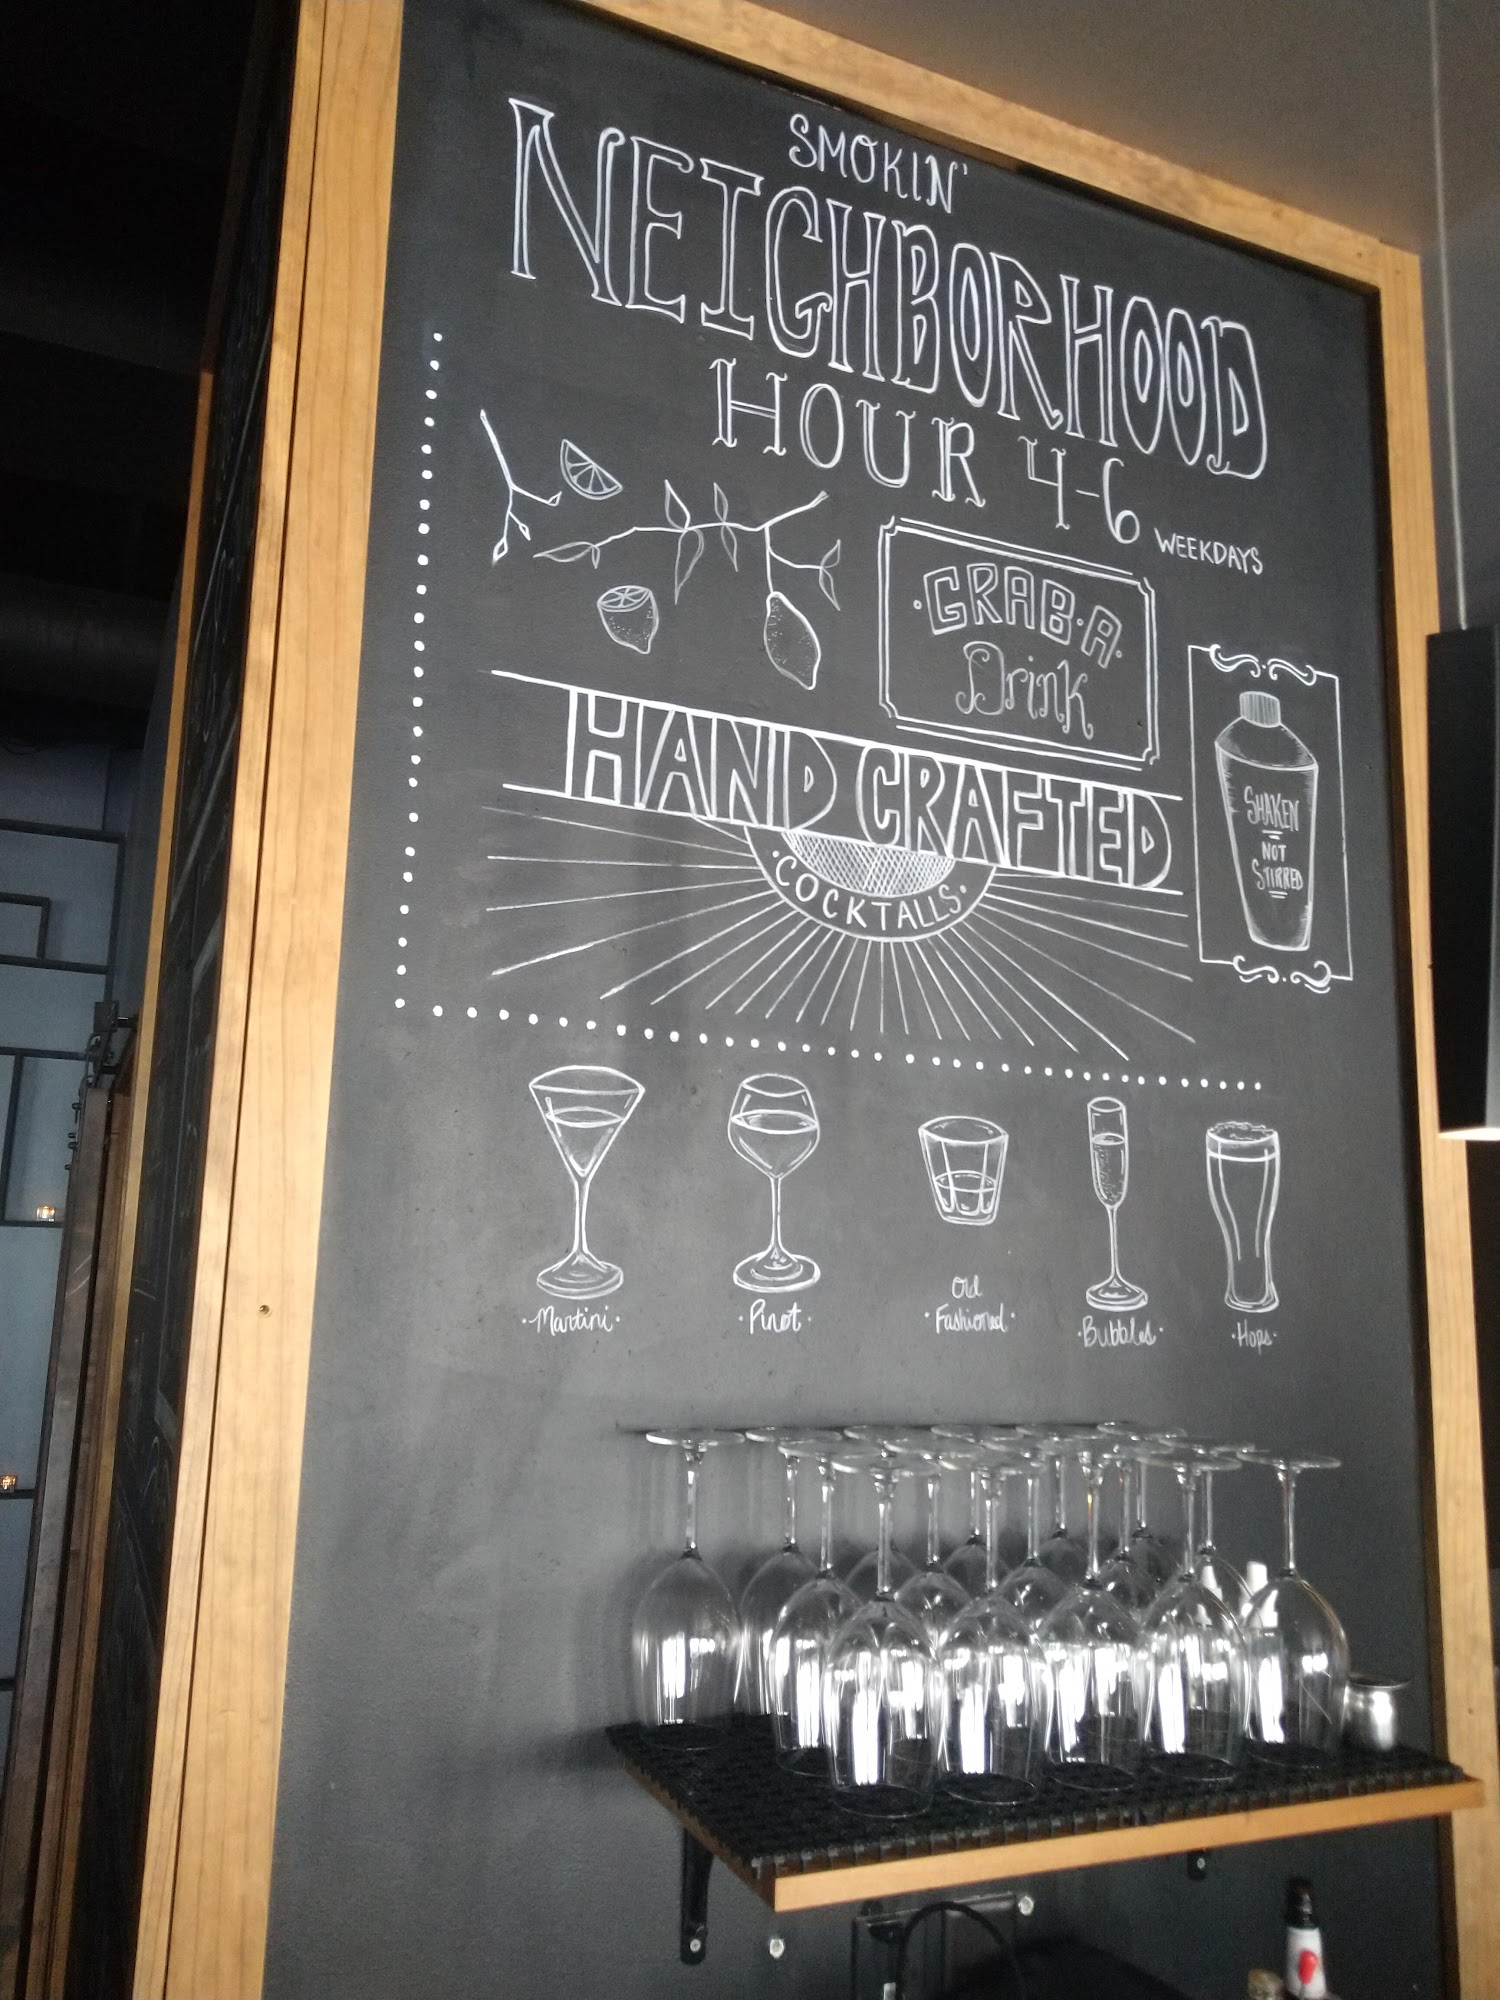 SMOKIN'
NEIGHBORHOOD
HOUR 4-6 WEEKDAYS
·GRAB·A·
Drink
HAND CRAFTED
·COCKTAILS·
SHAKEN
NOT
STIRRED
·Martini·
·Pinot·
Old
·Fashioned·
·Bubbles·
·Hops·